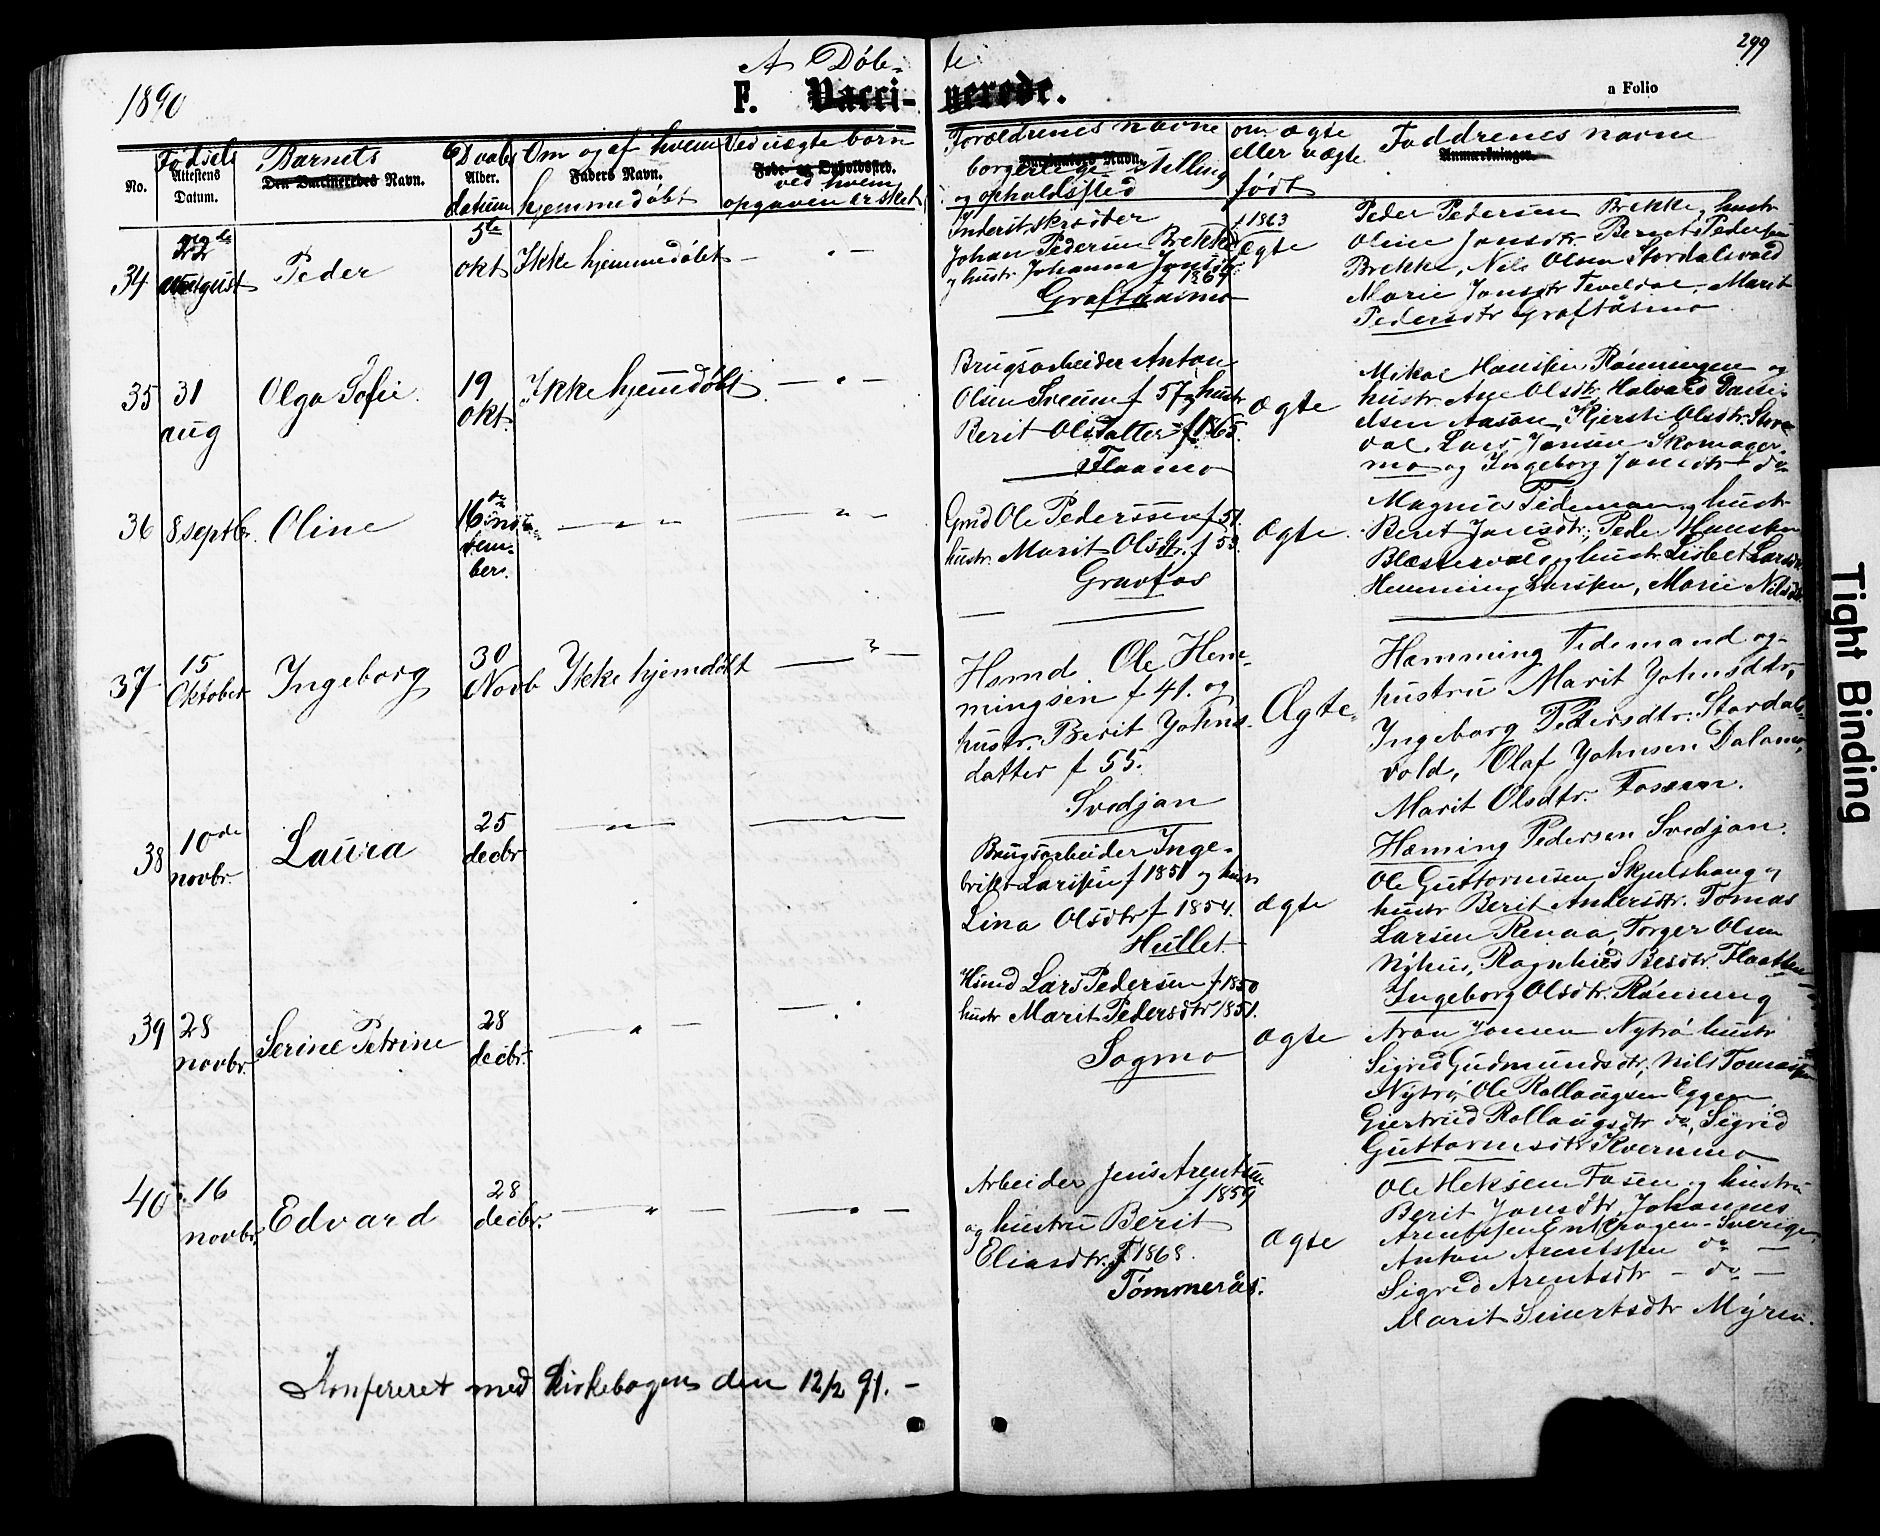 299
A Døb- te
1890
F. Vacci- nerede.
a Folio
No.
Fødsels
Attestens
Datum.
Barnets
Den Vaccineredes Navn.
Daabs
Alder.
datum
Om og af hvem
Faders Navn.
hjemmedøbt
Ved uægte børn
Føde- og Opholdssted.
ved hvem
opgaven er sket
Forældrenes navne
Vaccinators Navn.
borgerlige stilling
og opholdssted
om ægte
eller uægte
født
Faddrenes navne
Anmærkninger.
34
22de
august
Peder
5te
okt
Ikke hjemmedøbt
— " —
Inderst skrædder
Johan Pedersen Brekke
f 1863
g hustr Johanna Jonsdtr.
f 1867
Graftaasmo
ægte
Peder Pedersen Brekke, hustr
Oline Jonsdtr. Bernt Pedersen
Brekke, Nils Olsen Stordalsvold
Marie Jonsdtr Teveldal, Marit
Pedersdtr Graftåsmo
35
31
aug
Olga Sofie.
19
okt.
Ikke hjemdøbt.
— " —
Brugsarbeider Anton
Olsen Sveum f 57 g hustr
Berit Olsdatter f 1865.
Flaamo
ægte
Mikal Hansen Rønningen og
hustr. Ane Olsdtr. Halvard Dani-
elsen Aasan, Kjersti Olsdtr. Stor
dal, Lars Jonsen Skomager-
mo og Ingeborg Jonsdtr do
36
8 septbr.
Oline
16de
novem-
ber.
— " —
— " —
Gmd Ole Pederssen f 51.
hustr. Marit Olsdtr. f 53.
Gravfos
ægte.
Magnus Tideman g hustr
Berit Jonsdtr., Peder Hansen
Blæstervold g hustr. Lisbet Larsdtr
Hemming Larsen, Marie Nilsdtr
37
15
Oktober
Ingeborg
30
Novb
Ikke hjemdøbt
— " —
Hsmd. Ole Hem-
mingsen f 41. og
hustr. Berit Johns-
datter f 55.
Svedjan
Ægte.
Hæmming Tidemand og
hustru Marit Johnsdtr,
Ingeborg Pedersdtr. Stordals-
vold, Olaf Johnsen Dalamo,
Marit Olsdtr. Fossem.
38
10de
novbr.
Laura
25
decbr
— " —
— " —
Brugsarbeider Inge-
brikt Larsen f 1851 og hustr
Lina Olsdtr f 1854.
Hullet
ægte
Hæming Pedersen Svedjan.
Ole Guttormsen Skjelshaug g
hustr Berit Andersdtr. Tomas
Larsen Renaa, Torger Olsen
Nyhus, Ragnhild Besdtr. Flaatten
Ingeborg Olsdtr. Rønning
39
28
novbr.
Serine Petrine
28
decbr.
— " —
— " —
Hsmd Lars Pedersen f 1850
hustr Marit Pedersdtr 1851.
Sogmo
ægte
Aron Jonsen Nytrø hustr
Sigrid Gudmundsdtr, Nils Tomassen
Nytrø, Ole Rollaugsen Eggen
Gjertrud Rollaugsdtr do, Sigrid
Guttormsdtr Kvernmo
40
16
novbr.
Edvard
28
decbr.
— " —
— " —
Arbeider Jens Arentsen
f 1859
og hustru Berit
Eliasdtr. f 1868.
Tømmerås.
ægte
Ole Heksem Fosen og hustru
Berit Jonsdtr, Johannes
Arentssen Enkhagen - Sverige
Anton Arentssen do —
Sigrid Arentsdtr - do —
Marit Sivertsdtr Myren.
Konfereret med Kirkebogen den 12/2 91. -
Tight Binding